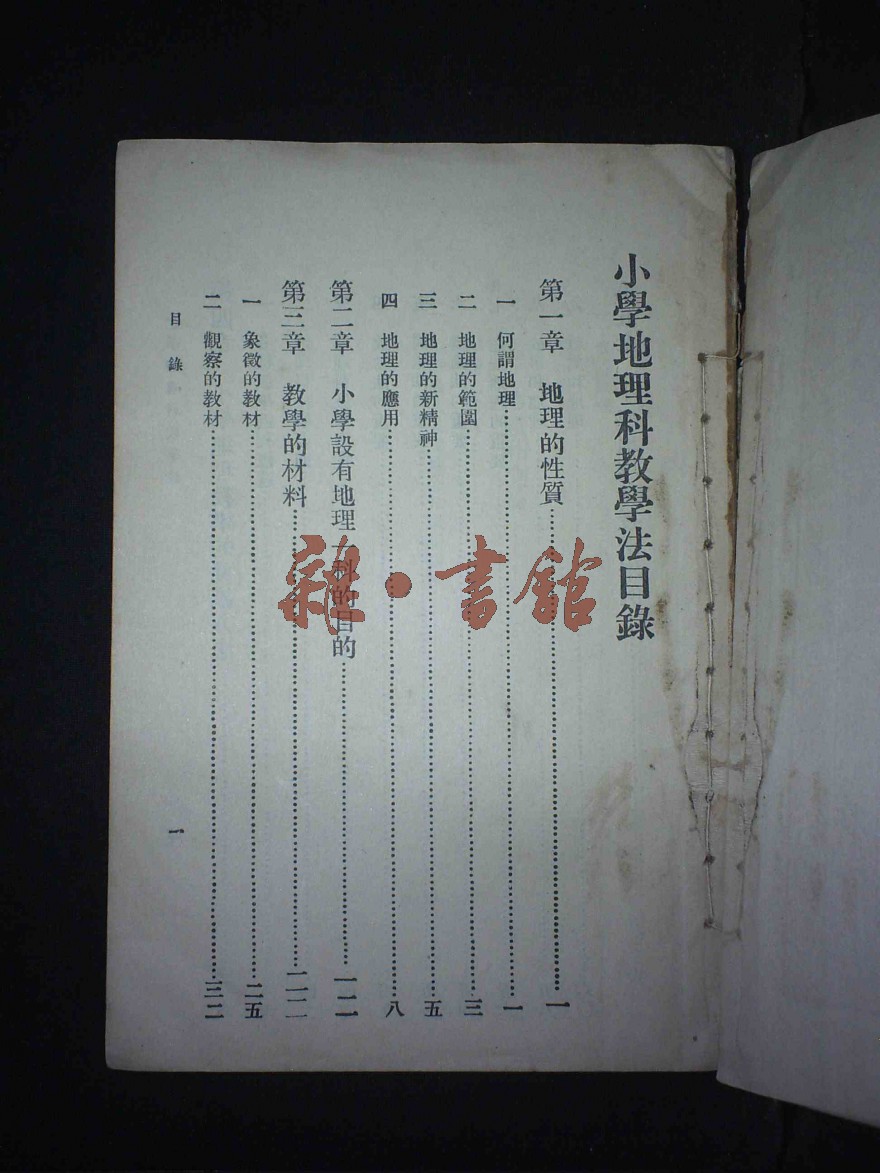 小學地理科教學法目錄
第一章 地理的性質……一
一 何謂地理……一
二 地理的範圍……三
三 地理的新精神……五
四 地理的應用……八
第二章 小學設有地理一科的目的……一二
第三章 教學的材料……二二
一 象徵的教材……二五
二 觀察的教材……三二
目錄
一
雜·書館